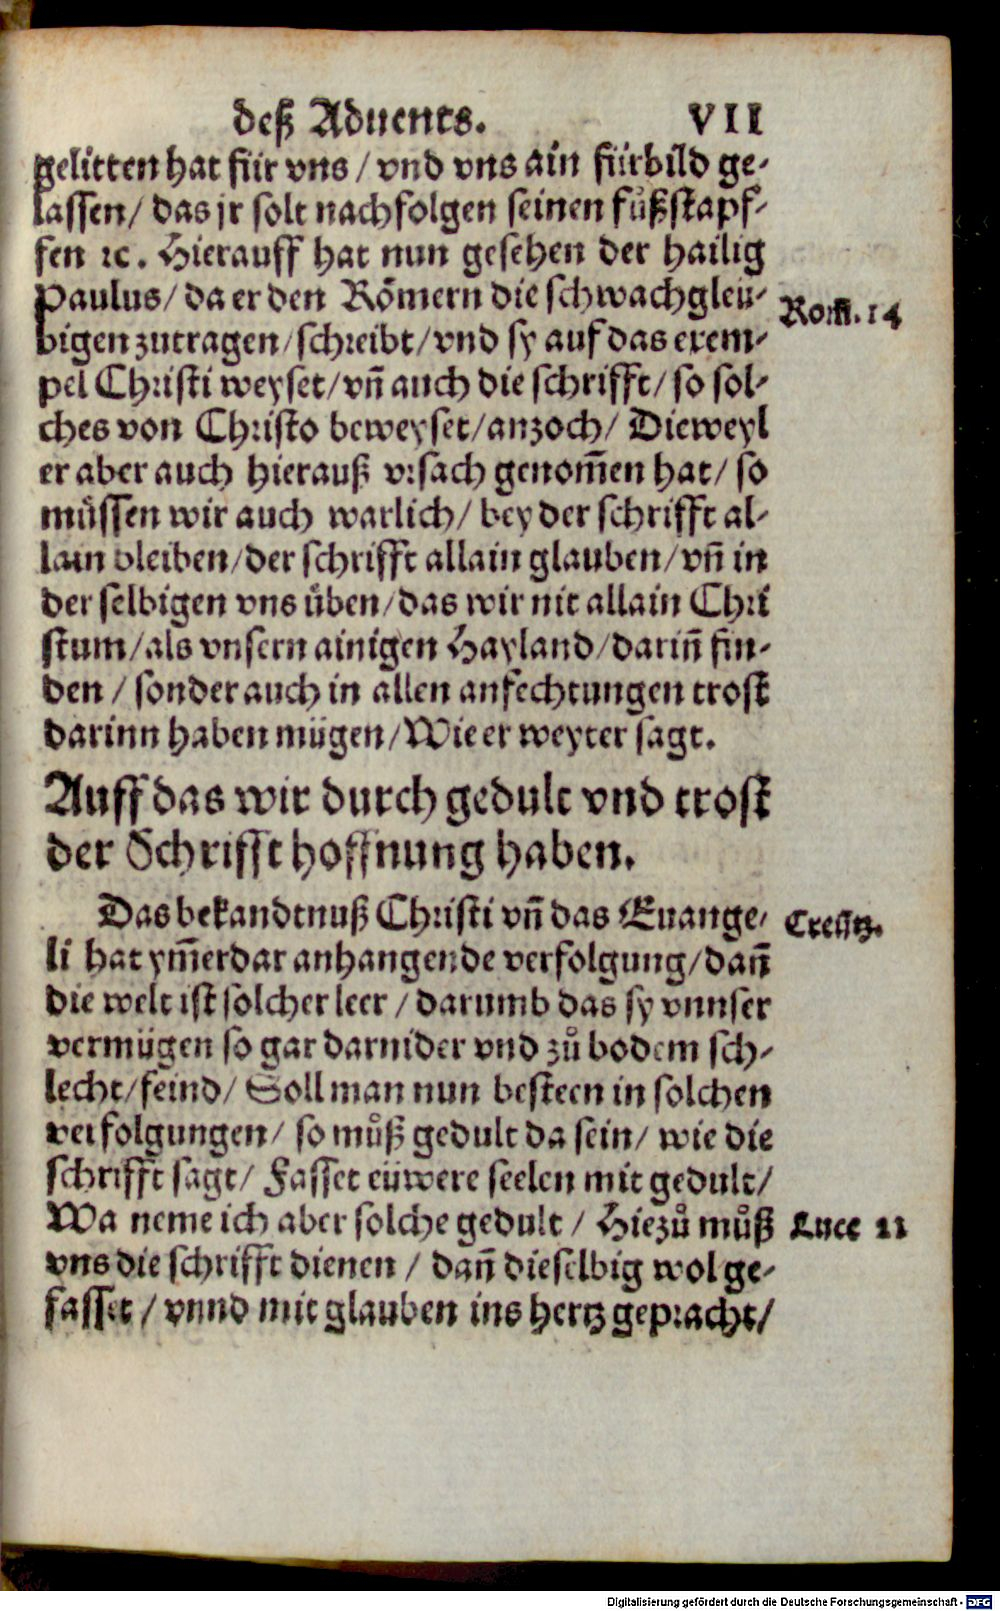 deß Aduents. VII
gelitten hat für vns / vnd vns ain fürbild ge-
lassen / das jr solt nachfolgen seinen fůßstapf-
fen ꝛc. Hierauff hat nun gesehen der hailig
Paulus / da er den Römern die schwachgleu-
bigen zutragen / schreibt / vnd sy auf das exem-
pel Christi weyset / vñ auch die schrifft / so sol-
ches von Christo beweyset / anzoch / Dieweyl
er aber auch hierauß vrsach genom̃en hat / so
müssen wir auch warlich / bey der schrifft al-
lain bleiben / der schrifft allain glauben / vñ in
der selbigen vns üben / das wir nit allain Chri
stum / als vnsern ainigen Hayland / dariñ fin-
den / sonder auch in allen anfechtungen trost
darinn haben mügen / Wie er weyter sagt.
Auff das wir durch gedult vnd trost
der Schrifft hoffnung haben.
Das bekandtnuß Christi vñ das Euange-
li hat ym̃erdar anhangende verfolgung / dañ
die welt ist solcher leer / darumb das sy vnnser
vermügen so gar darnider vnd zů bodem sch-
lecht / feind / Soll man nun besteen in solchen
verfolgungen / so můß gedult da sein / wie die
schrifft sagt / Fasset eüwere seelen mit gedult /
Wa neme ich aber solche gedult / Hiezů můß
vns die schrifft dienen / dañ dieselbig wol ge-
fasset / vnnd mit glauben ins hertz gepracht /
Rom. 14
Creütz.
Luce 21
Digitalisierung gefördert durch die Deutsche Forschungsgemeinschaft - DFG